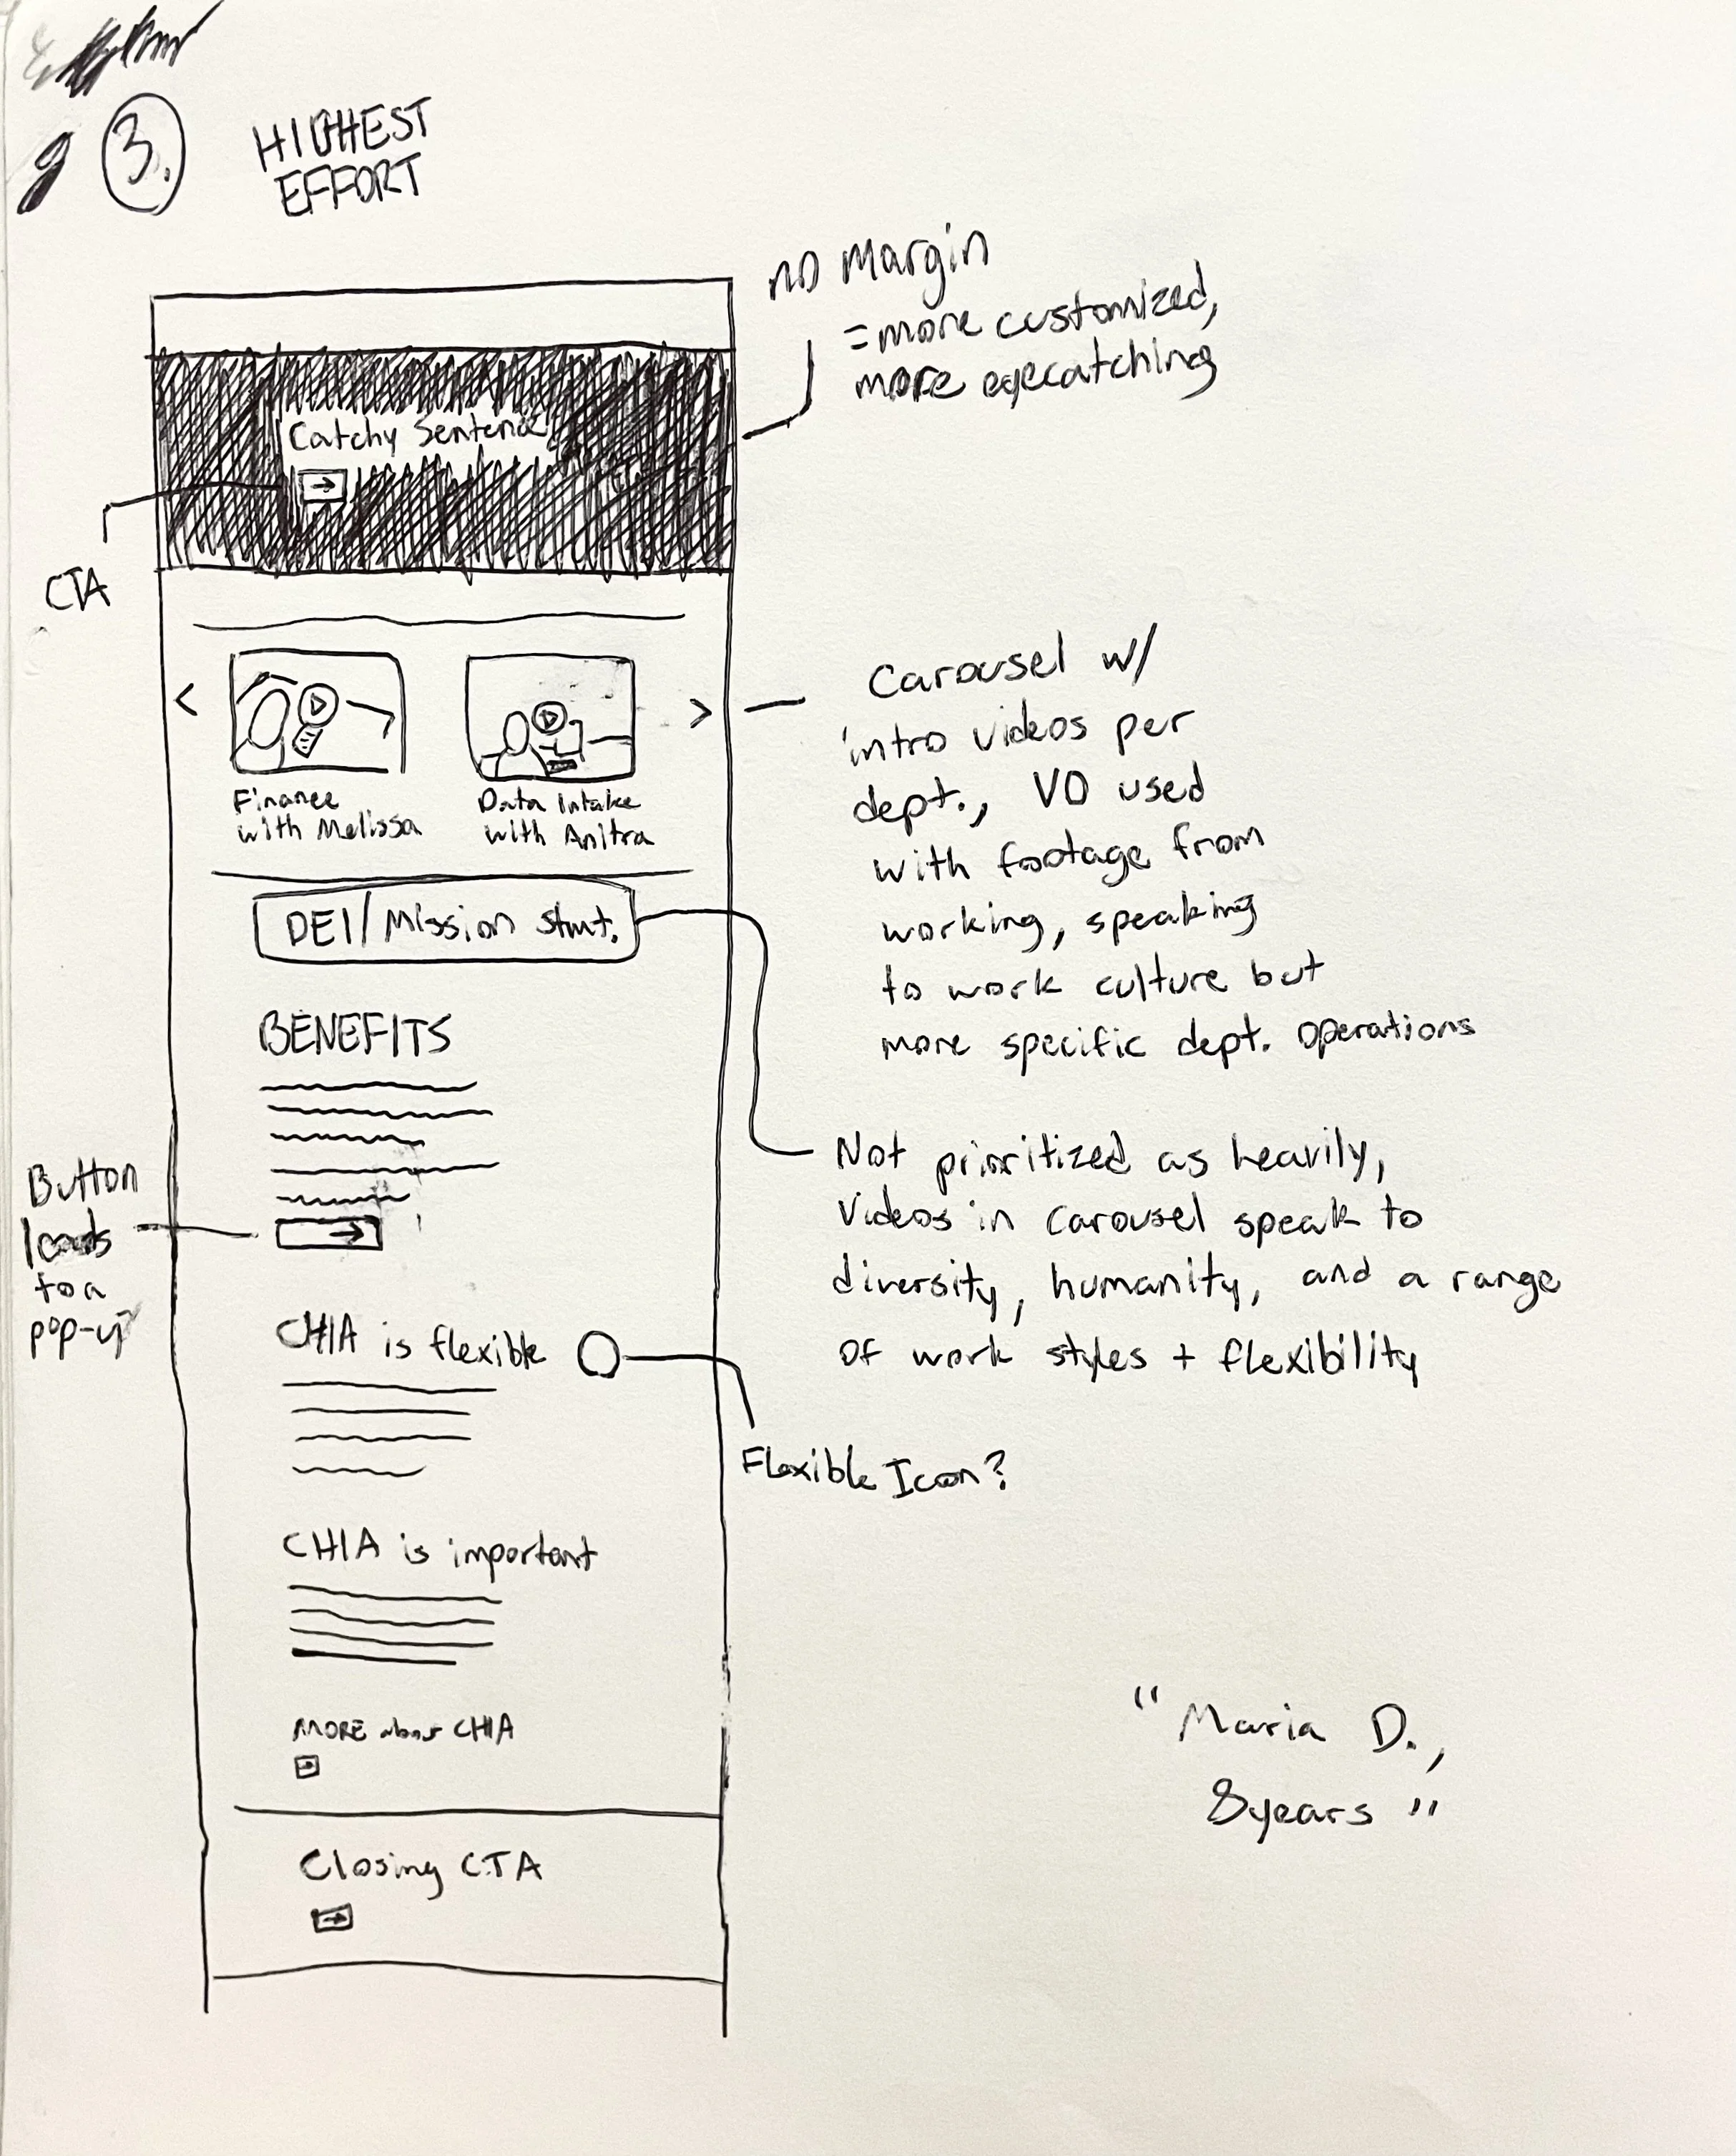 3.
HIGHEST
EFFORT
no Margin
= more customized,
more eyecatching
Catchy Sentence
CTA
Carousel w/
intro videos per
dept., VO used
with footage from
working, speaking
to work culture but
more specific dept. operations
Finance
with Melissa
Data Intake
with Anitra
DEI/Mission stmt.
Not prioritized as heavily,
Videos in carousel speak to
diversity, humanity, and a range
of work styles + flexibility
BENEFITS
Button
leads
to a
pop-up
CHIA is flexible
Flexible Icon?
CHIA is important
MORE about CHIA
"Maria D.,
8years"
Closing CTA